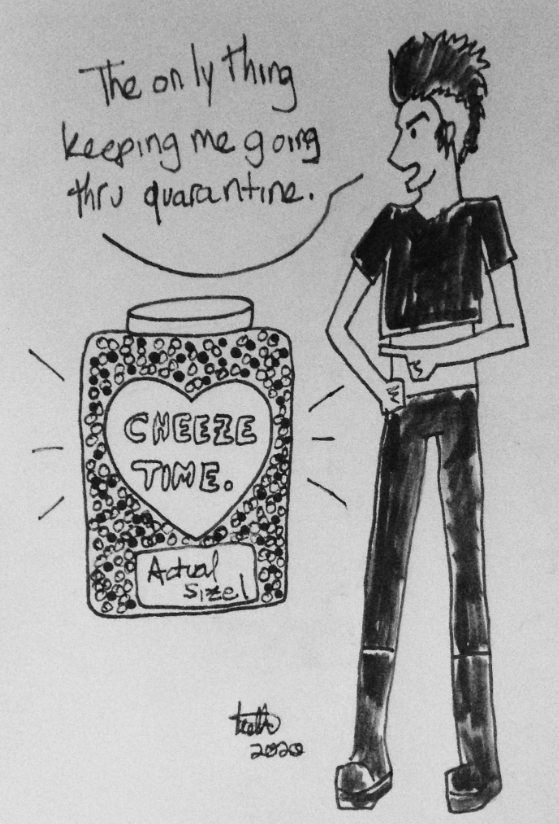 The only thing
keeping me going
thru quarantine.
CHEEZE
TIME.
Actual
Size!
2020